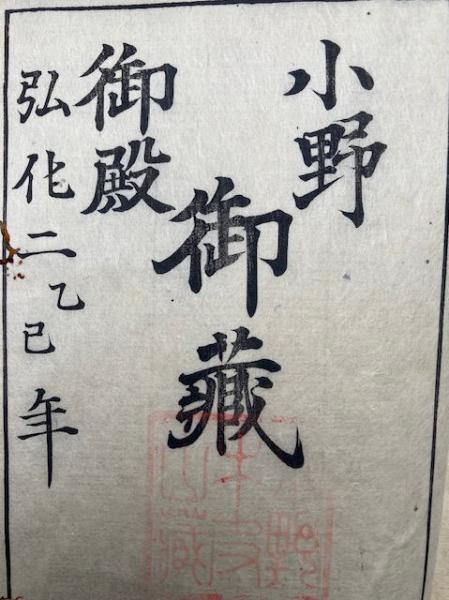 小野
御藏
御殿
弘化二乙巳年